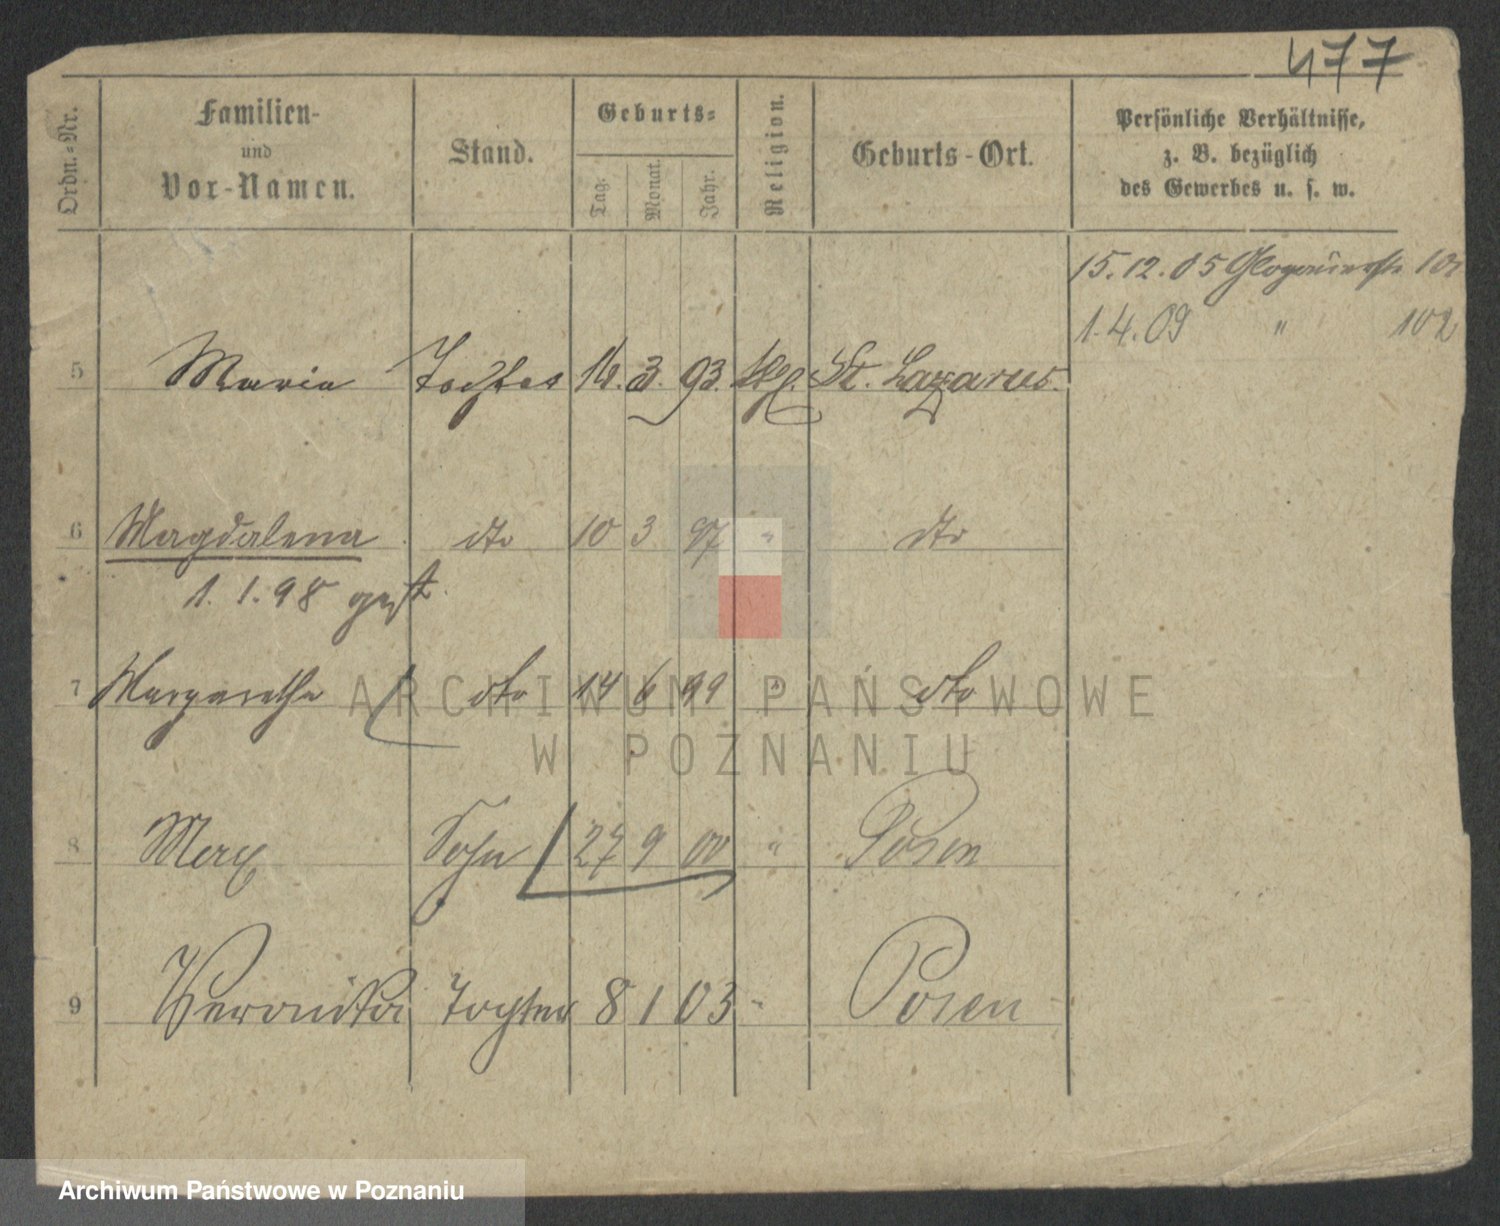 477
Ordn.-Nr.
Familien-
und
Vor-Namen.
Stand.
Geburts-
Tag.
Monat.
Jahr.
Religion.
Geburts-Ort.
Persönliche Verhältnisse,
z. B. bezüglich
des Gewerbes u. s. w.
15.12.05 Glogauerstr 101
1.4.09 " 102
5 Maria Tochter 16. 3. 93. St. Lazarus.
6 Magdalena dto 10 3 97 " dto
1.1.98 gest.
7 Margarethe dto 14 6 99 " dto
8 Max Sohn 27 9 00 " Posen
9 Veronika Tochter 8 1 03 " Posen
ARCHIWUM PAŃSTWOWE
W POZNANIU
Archiwum Państwowe w Poznaniu